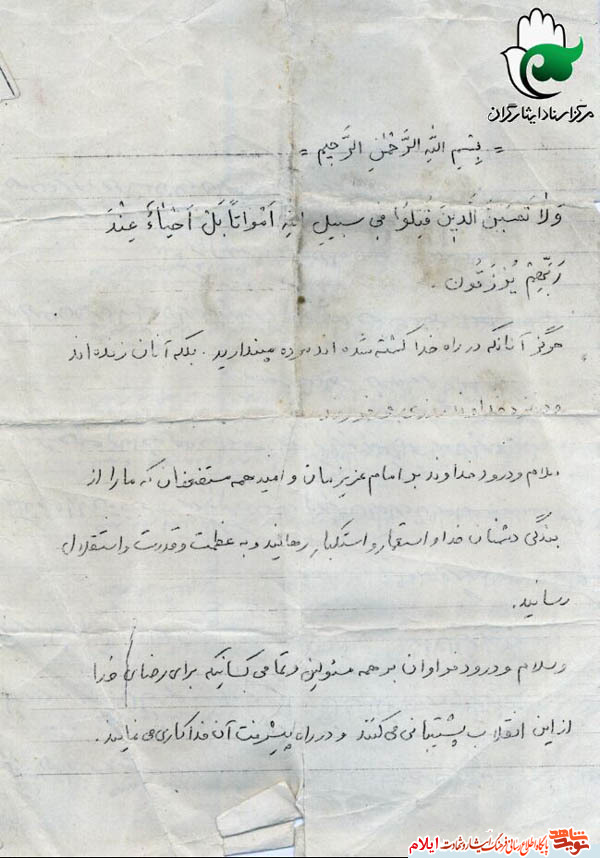 مرکز اسناد ایثارگران
= بِسْمِ اللهِ الرَّحْمٰنِ الرَّحیمِ =
وَلاٰ تَحْسَبَنَ الَّذینَ قُتِلُوا فی سبیلِ اللهِ اَمْواتاً بَلْ اَحْیٰاءٌ عِنْدَ
رَبِّهِمْ یُرْزَقُون.
هرگز آنانکه در راه خدا کشته شده اند مرده مپندارید. بلکه آنان زنده اند
و در نزد خداوند روزی می خورند
سلام و درود خداوند بر امام عزیزمان و امید همه مستضعفان که ما را از
بندگی دشمنان خدا و استعمار و استکبار رهانید و به عظمت و قدرت و استقلال
رسانید.
وسلام و درود فراوان بر همه مسئولین و تمامی کسانیکه برای رضای خدا
از این انقلاب پشتیبانی می کنند و در راه پیشرفت آن فداکاری می نمایند.
نوید شاهد پایگاه اطلاع رسانی فرهنگ ایثار و شهادت ایلام